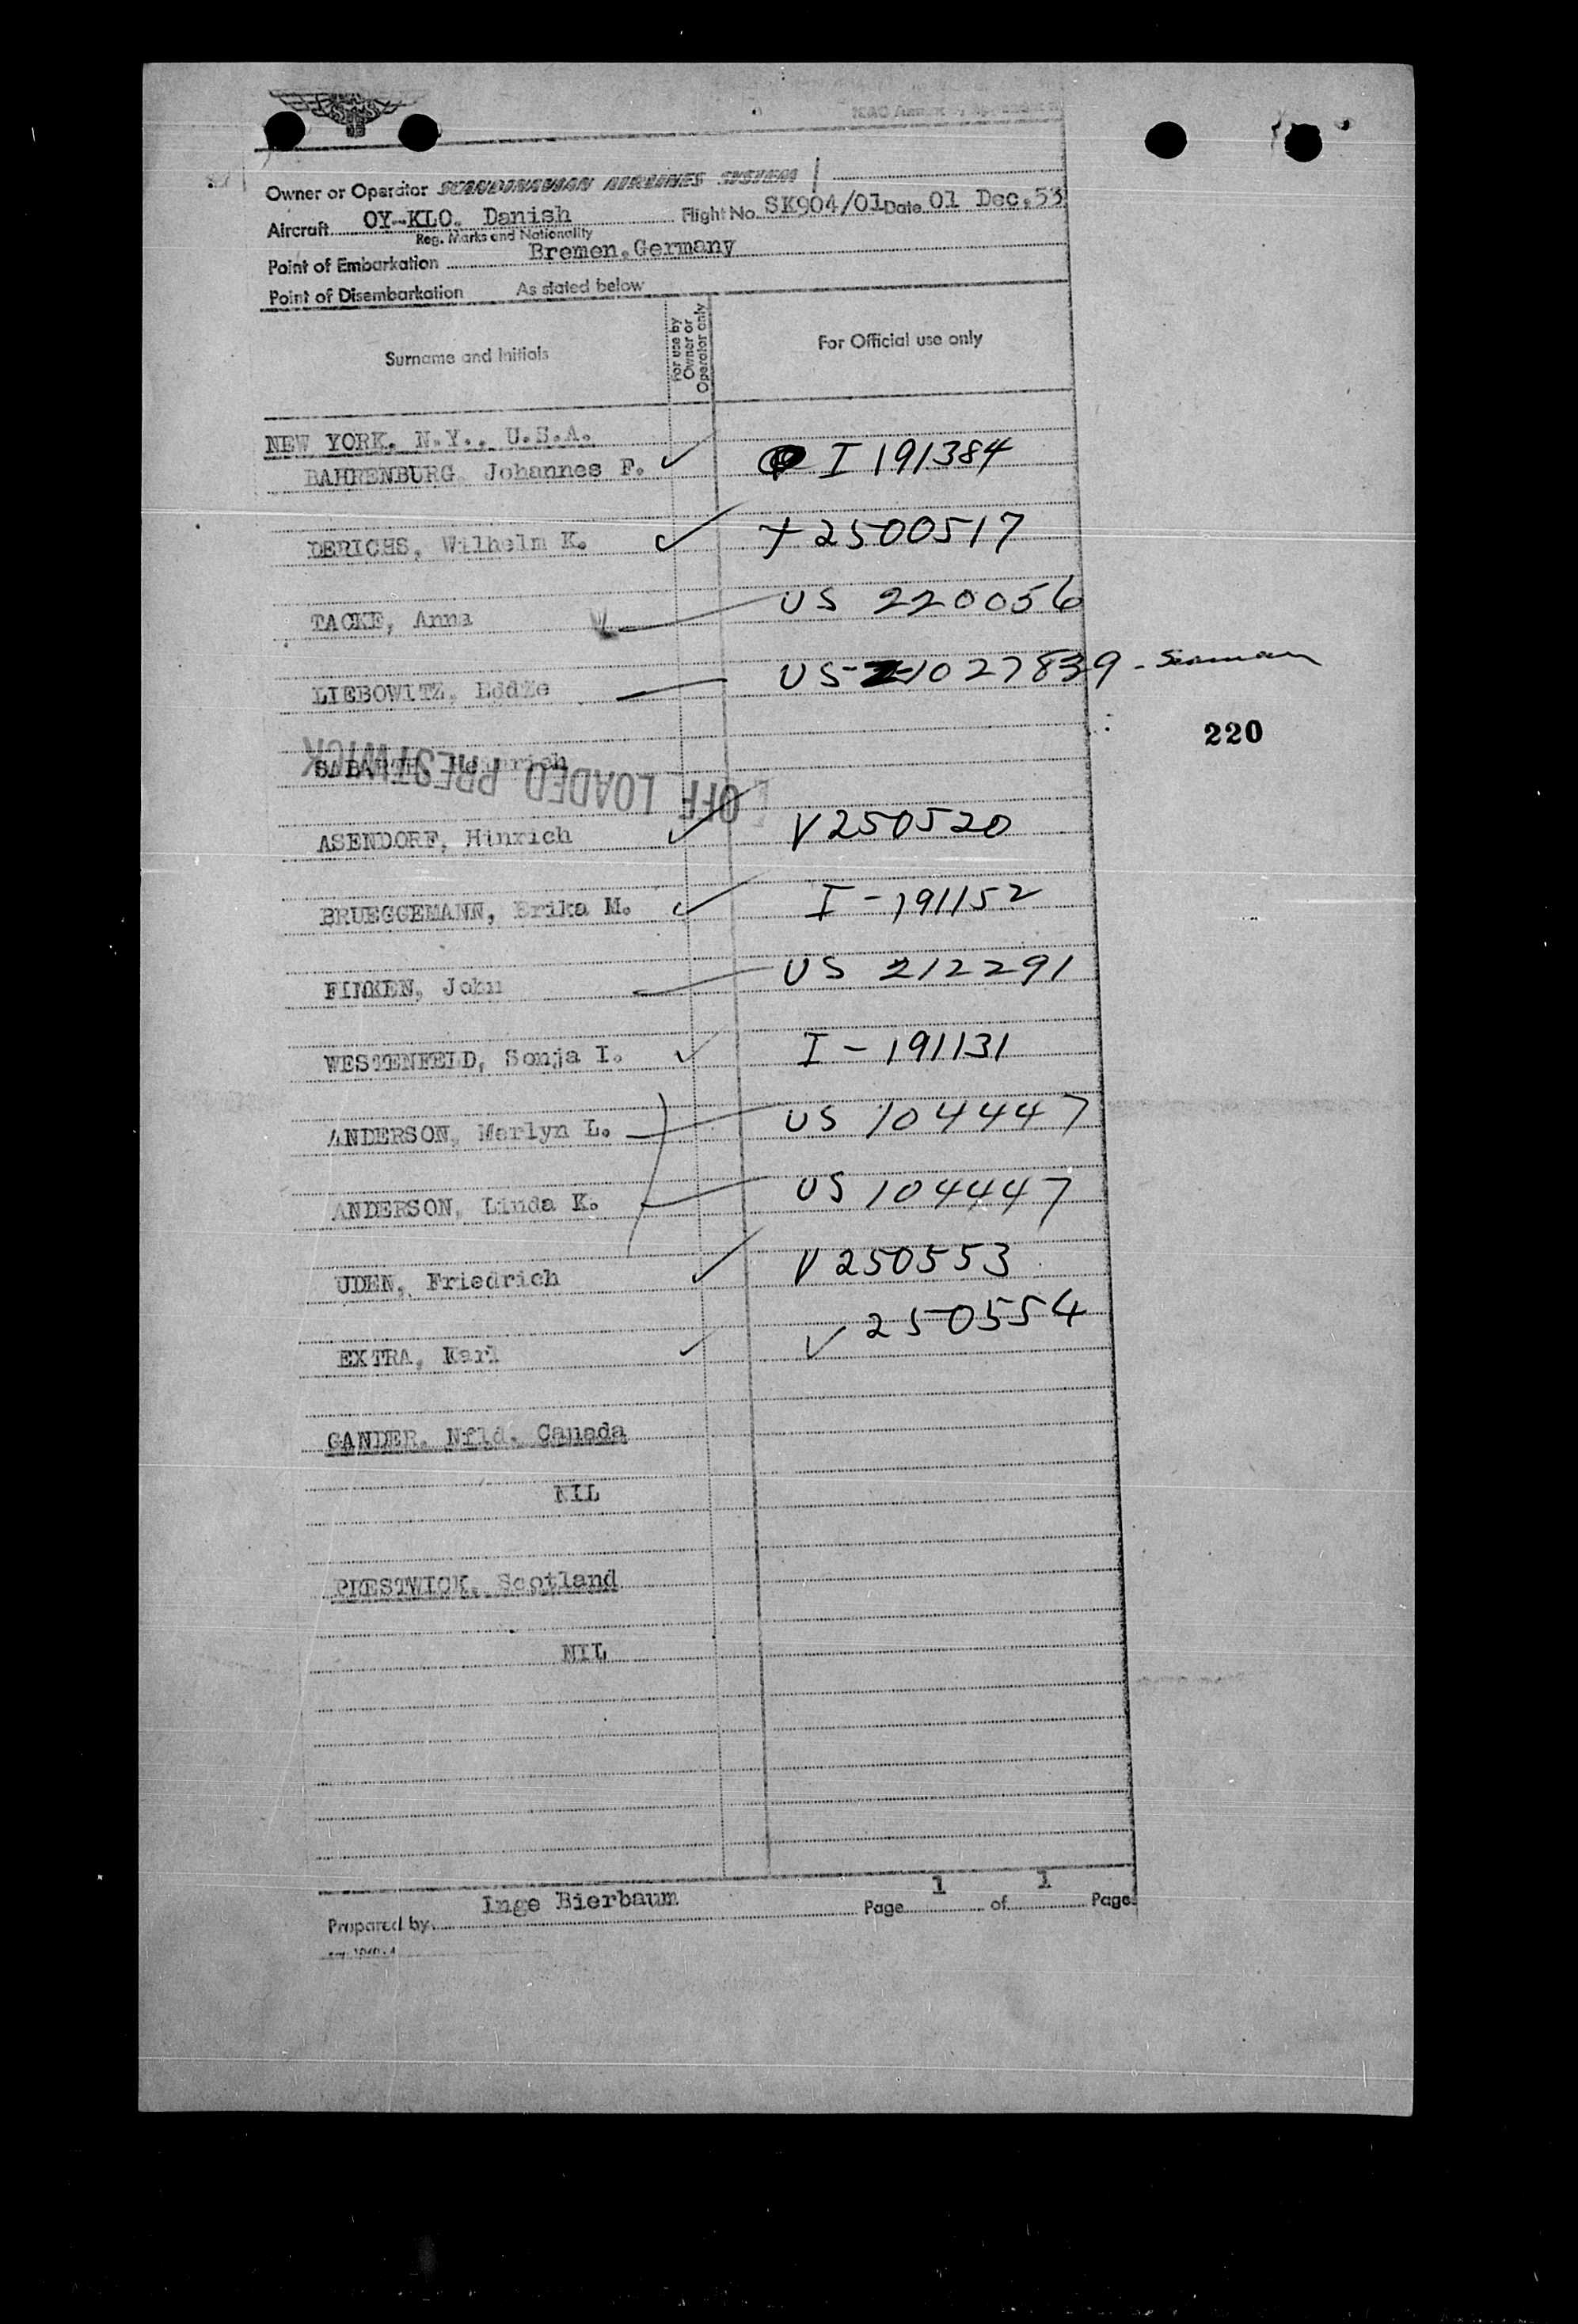 Owner or Operator SCANDINAVIAN AIRLINES SYSTEM
Aircraft OY-KLO. Danish Flight No. SK904/01 Date 01 Dec. 53
Reg. Marks and Nationality
Point of Embarkation Bremen, Germany
Point of Disembarkation As stated below
Surname and Initials For use by Owner or Operator only For Official use only
NEW YORK, N.Y., U.S.A.
BAHRENBURG, Johannes F. I 191384
DERICHS, Wilhelm K. 2500517
TACKE, Anna US 220056
LIEBOWITZ, US 1027839 - Seaman
220
Heinrich
OFF LOADED PRESTWICK
ASENDORF, Hinrich V250520
BRUEGGEMANN, Erika M. I-191152
FINKEN, John US 212291
WESTENFELD, Sonja I. I-191131
ANDERSON, Merlyn L. US 104447
ANDERSON, Linda K. US 104447
UDEN, Friedrich V250553
EXTRA, Karl V250554
GANDER, Nfld. Canada
NIL
PRESTWICK, Scotland
NIL
Prepared by Inge Bierbaum Page 1 of 1 Page